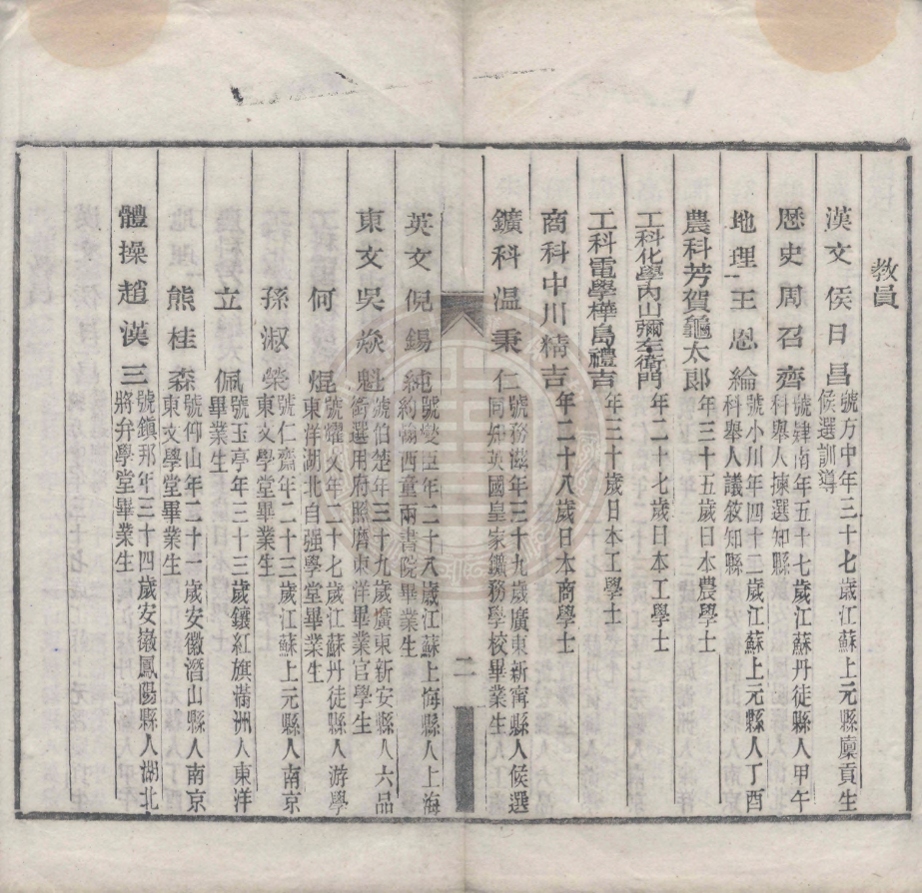 教員
漢文侯日昌
號方中年三十七歲江蘇上元縣廩貢生
候選訓導
歷史周召齊
號肄南年五十七歲江蘇丹徒縣人甲午
科舉人揀選知縣
地理王恩綸
號小川年四十二歲江蘇上元縣人丁酉
科舉人議敘知縣
農科芳賀龜太郎
年三十五歲日本農學士
工科化學內山彌左衛門
年二十七歲日本工學士
工科電學樺島禮吉
年三十歲日本工學士
商科中川精吉
年二十八歲日本商學士
鑛科温秉仁
號務滋年三十九歲廣東新甯縣人候選
同知英國皇家鑛務學校畢業生
二
英文倪錫純
號燮臣年二十八歲江蘇上海縣人上海
約翰西童兩書院畢業生
東文吳燚魁
號伯楚年三十九歲廣東新安縣人六品
銜選用府照磨東洋畢業官學生
何焜
號耀文年二十七歲江蘇丹徒縣人游學
東洋湖北自强學堂畢業生
孫淑榮
號仁齋年二十三歲江蘇上元縣人南京
東文學堂畢業生
立佩
號玉亭年三十三歲鑲紅旗滿洲人東洋
畢業生
熊桂森
號仰山年二十一歲安徽潛山縣人南京
東文學堂畢業生
體操趙漢三
號鎮邦年三十四歲安徽鳳陽縣人湖北
將弁學堂畢業生